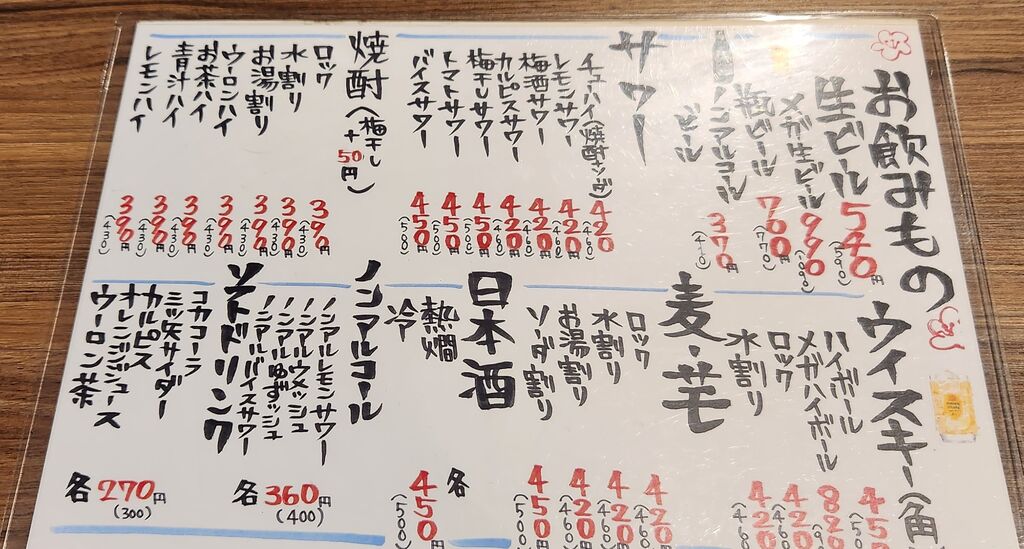 お飲みもの
生ビール 540円(590)
メガ生ビール 990(1090)
瓶ビール 760円(770)
ノンアルコールビール 370円(410)
サワー
チューハイ(焼酎タンサン) 420(460)
レモンサワー 420(460)
梅酒サワー 420(460)
カルピスサワー 420(460)
梅干しサワー 450(500)
トマトサワー 450(500)
バイスサワー 450円(500)
焼酎(梅干し+50円)
ロック 390円(430)
水割り 390円(430)
お湯割り 390円(430)
ウーロンハイ 390円(430)
お茶ハイ 390円(430)
青汁ハイ 390円(430)
レモンハイ 390円(430)
ウイスキー(角
ハイボール 450
メガハイボール 820
ロック 420(460)
水割り 420(460)
麦・芋
ロック 420(460)
水割り 420(460)
お湯割り 420(460)
ソーダ割り 450(500)
日本酒
熱燗
冷
各 450円(500)
ノンアルコール
ノンアルレモンサワー
ノンアルウメッシュ
ノンアルゆずッシュ
ノンアルバイスサワー
各360円(400)
ソフトドリンク
コカコーラ
三ツ矢サイダー
カルピス
オレンジジュース
ウーロン茶
各270円(300)